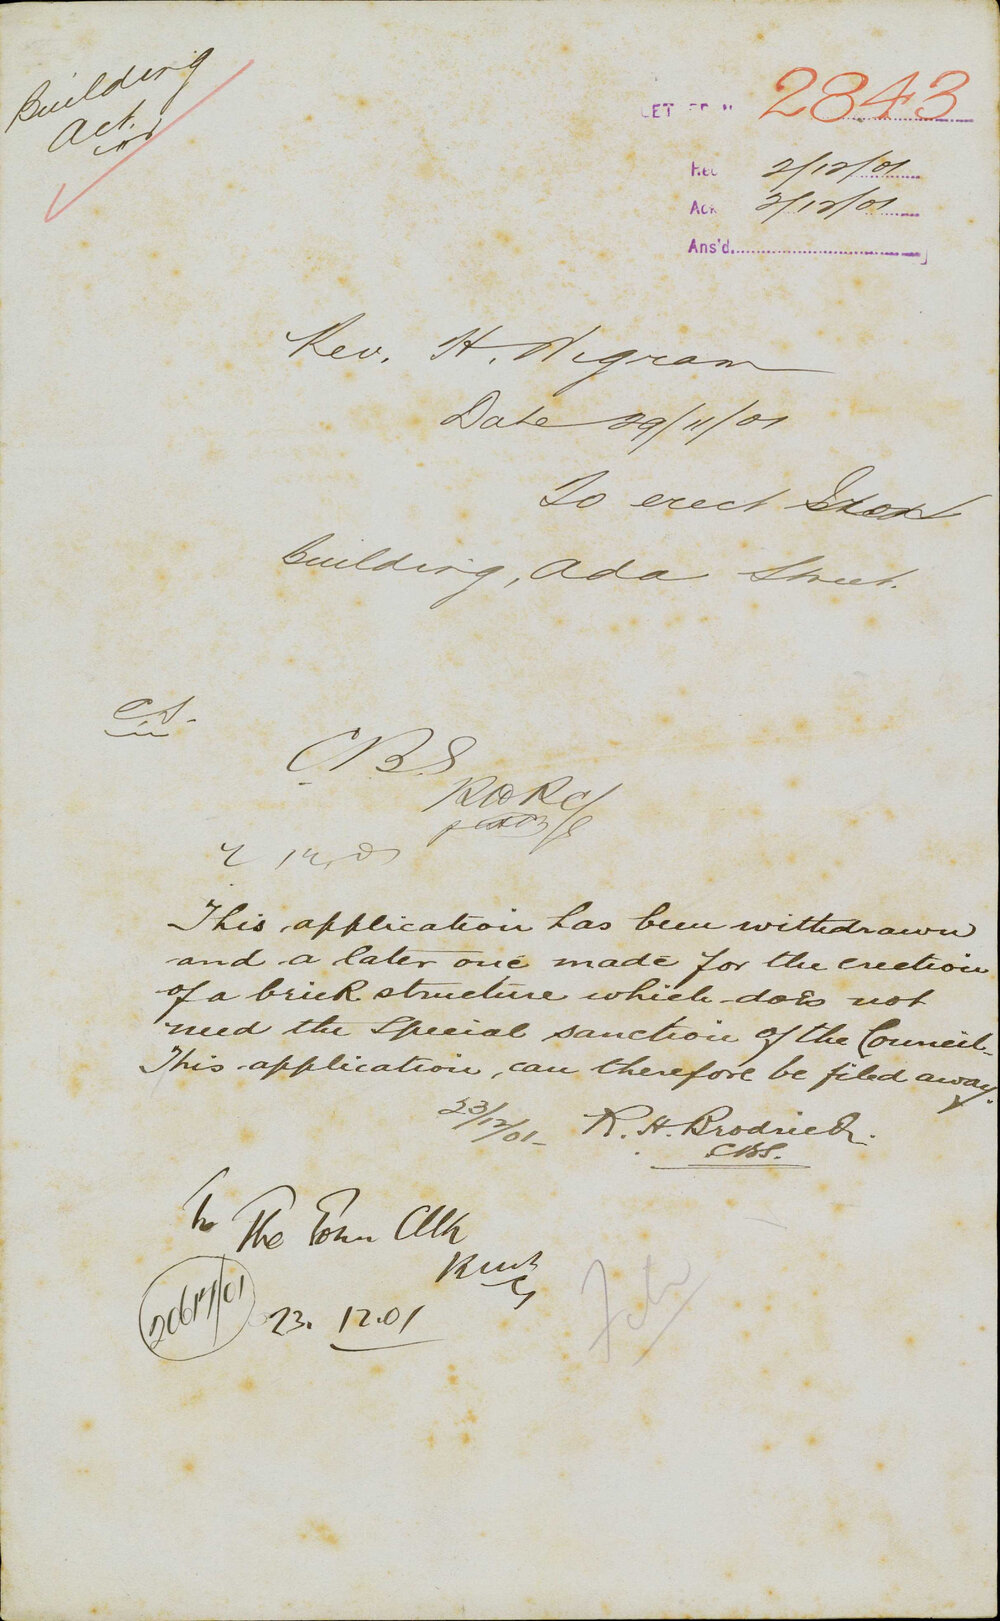 Building
Act.
2843
Rec 2/12/01
Ack 3/12/01
Ans'd
Rev. H. Wigram
Date 29/11/01
To erect Iron
building, Ada Street.
C.S.
C.B.S
2 12 01
This application has been withdrawn
and a later one made for the erection
of a brick structure which does not
need the special sanction of the Council.
This application can therefore be filed away.
23/12/01 R. H. Brodrick.
CBS.
To The Town Clk
23. 12.01
File